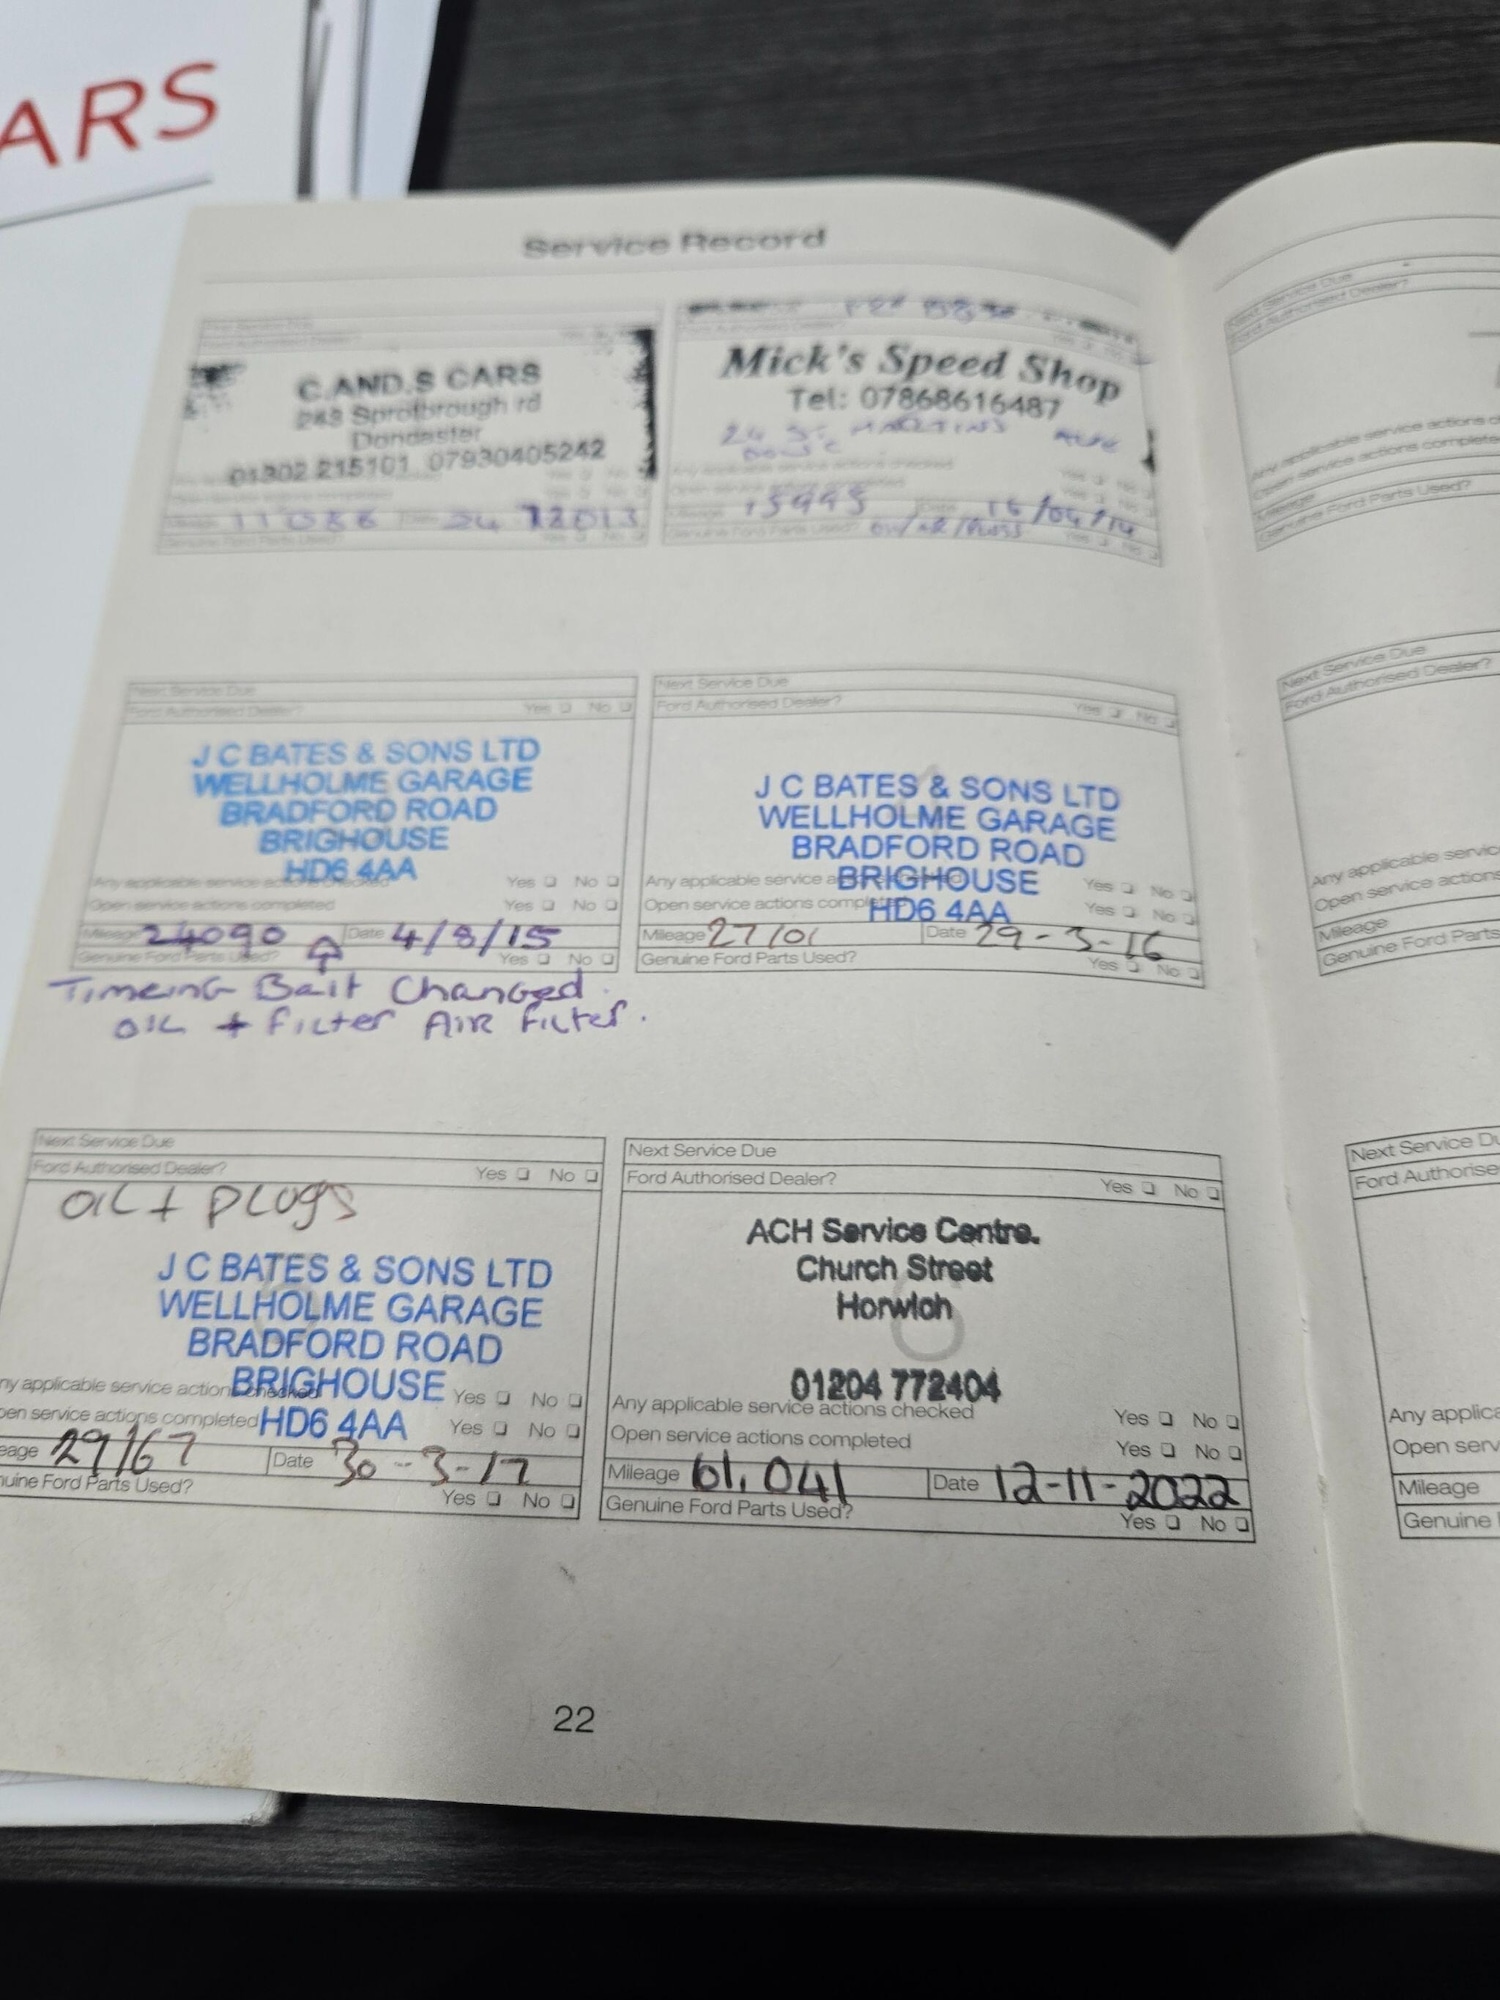 ARS
Service Record
C.AND.S CARS
Sprotbrough rd
01302 215101 07930405242
Mileage
Genuine Ford Parts Used?
Mick's Speed Shop
Tel: 07868616487
24 St MARTINS
Any applicable service actions checked
Open service actions completed
15995 Date 16/04/14
Genuine Ford Parts Used? Yes No
Next Service Due
Ford Authorised Dealer? Yes No
J C BATES & SONS LTD
WELLHOLME GARAGE
BRADFORD ROAD
BRIGHOUSE
HD6 4AA
Any applicable service actions checked Yes No
Open service actions completed Yes No
Mileage 24090 Date 4/8/15
Genuine Ford Parts Used? Yes No
Timeing Balt Changed.
OIL + Filter AIR Filter.
Next Service Due
Ford Authorised Dealer? Yes No
J C BATES & SONS LTD
WELLHOLME GARAGE
BRADFORD ROAD
BRIGHOUSE
HD6 4AA
Any applicable service a Yes No
Open service actions comple Yes No
Mileage 27101 Date 29-3-16
Genuine Ford Parts Used? Yes No
Next Service Due
Ford Authorised Dealer? Yes No
OIL + PLUGS
J C BATES & SONS LTD
WELLHOLME GARAGE
BRADFORD ROAD
BRIGHOUSE
HD6 4AA
ny applicable service action checked Yes No
pen service actions completed Yes No
eage 29167 Date 30-3-17
nuine Ford Parts Used? Yes No
Next Service Due
Ford Authorised Dealer? Yes No
ACH Service Centre.
Church Street
Horwich
01204 772404
Any applicable service actions checked Yes No
Open service actions completed Yes No
Mileage 61,041 Date 12-11-2022
Genuine Ford Parts Used? Yes No
22
Next Service Due
Ford Authorised Dealer?
Any applicable service actions
Open service actions complete
Mileage
Genuine Ford Parts Used?
Next Service Due
Ford Authorised Dealer?
Any applicable servic
Open service actions
Mileage
Genuine Ford Parts
Next Service Du
Ford Authorise
Any applica
Open serv
Mileage
Genuine